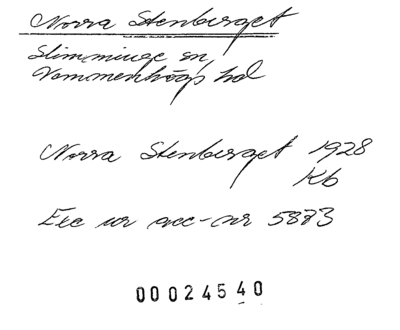 Norra Stenberget
Slimminge sn,
Vemmenhögs hd
Norra Stenberget 1928
Kb
Exc ur acc-nr 5883
00024540